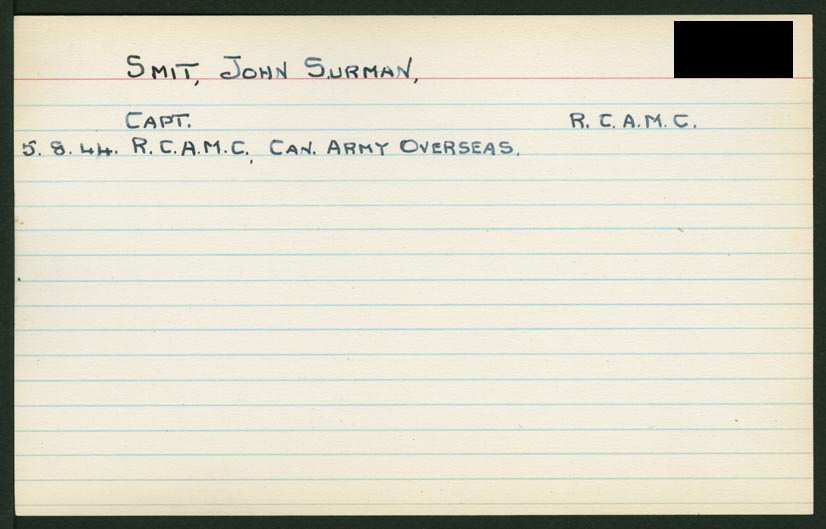 SMIT, JOHN SURMAN,
CAPT. R.C.A.M.C.
5.8.44. R.C.A.M.C., CAN. ARMY OVERSEAS.